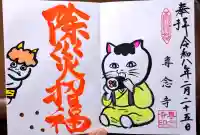 奉拝
令和八年二月二十五日
専念寺
除災招福